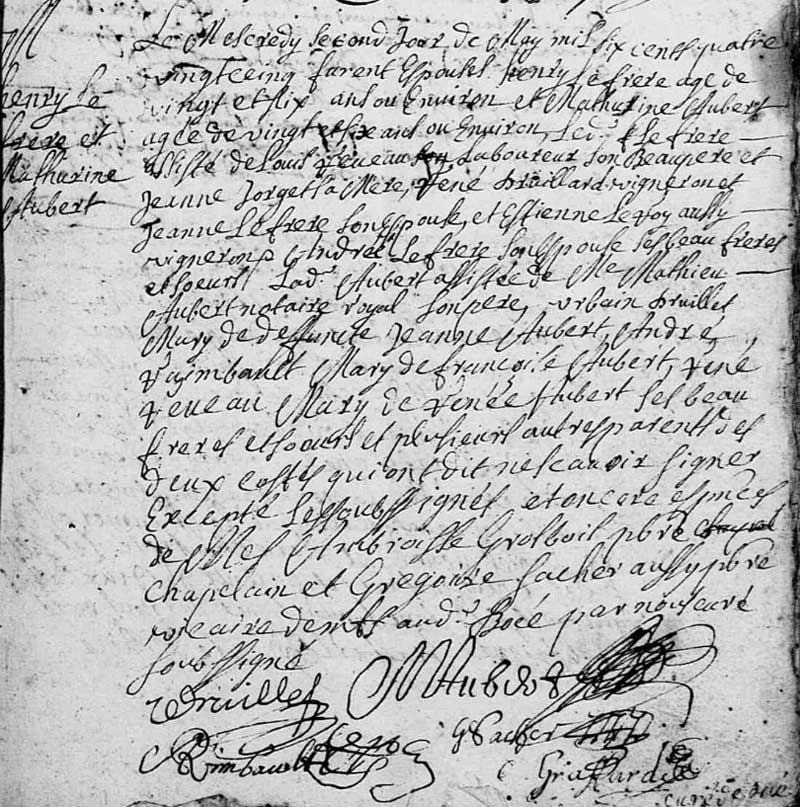 M
henry Le
frere et
Mathurine
Aubert
Le Mescredy second Jour de May mil six cents quatre
vingt cinq furent Espousés henry Le frere age de
vingt et six ans ou Environ et Mathurine Aubert
agée de vingt et six ans ou Environ, Led. Le frere
assisté de Louis Reveau Laboureur son Beaupere et
Jeanne Jorget sa Mere, René druillard vigneron et
Jeanne Le frere son Espouse, et Estienne Leroy aussy
vigneron Andrée Le frere son Espouse ses beau freres
et soeurs Lad. Aubert assistée de Me Mathieu
Aubert notaire royal son pere, urbain druillet
Mary de deffuncte Jeanne Aubert, André
Raimbault Mary de françoise Aubert, René
Reveau Mary de Renée Aubert ses beau
freres et soeurs et plusieurs autres parents des
deux costés qui ont dit ne scavoir signer
Excepté Les soubssignés et encore es pnces
de Mes Ambroisse Grosboil pbre
chapelain et Gregoire sacher aussy pbre
vicaire demts aud. Bocé par nous curé
soubssigné
Druillet MAubert
Rimbault GSacher
curé de Bocé